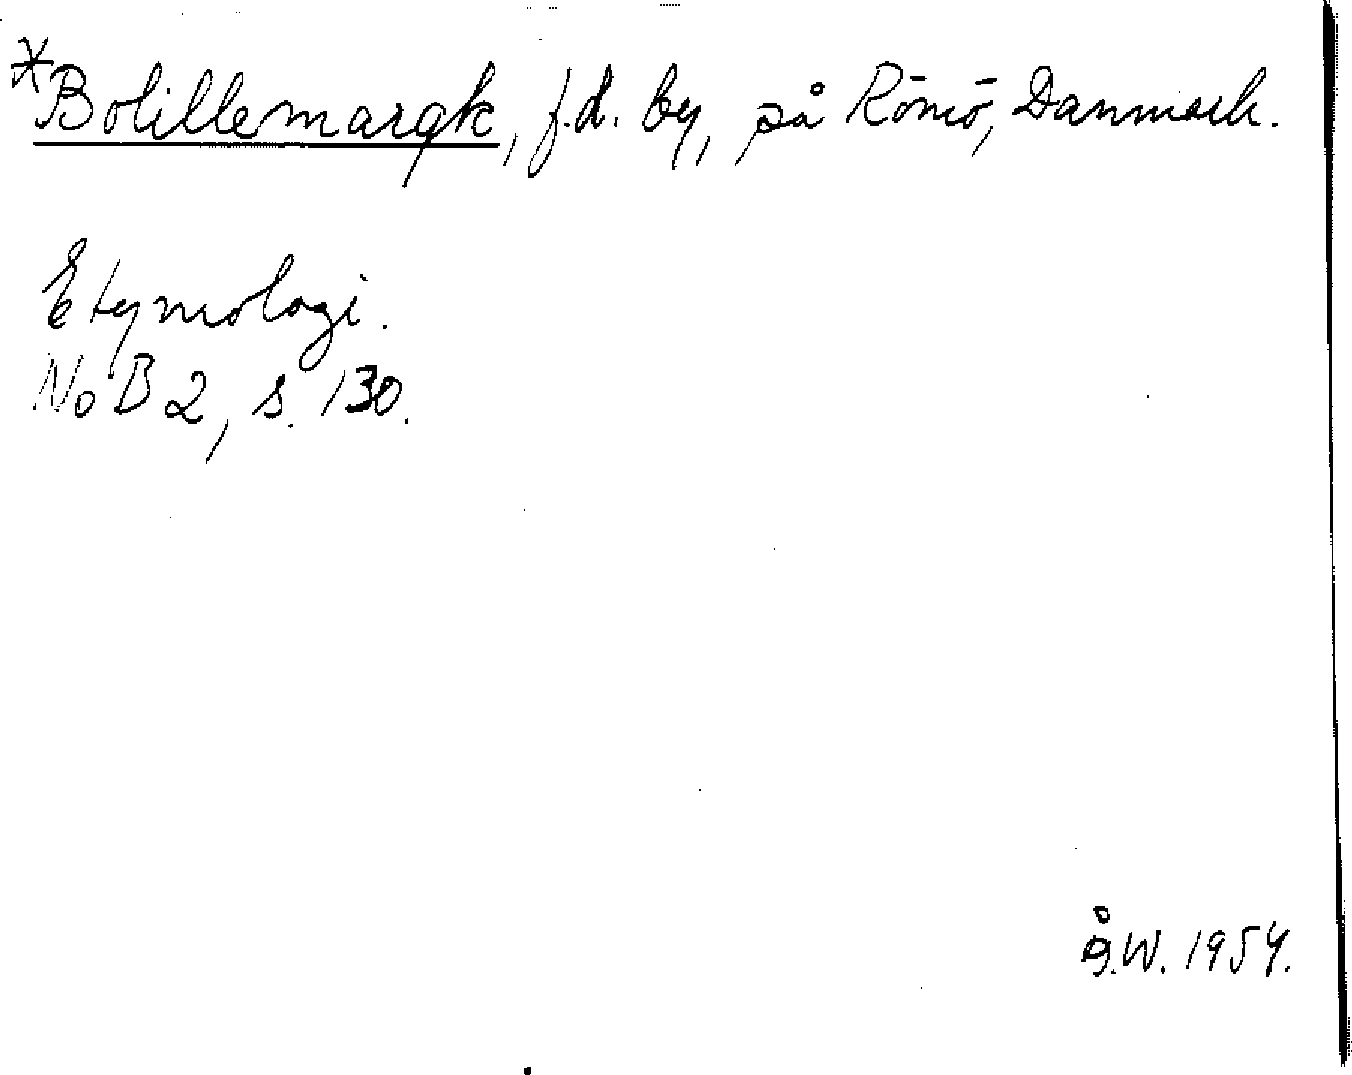 *Bolillemargk, f.d. by, på Römö, Danmark.
Etymologi.
NoB 2, s. 130.
Å.W. 1954.